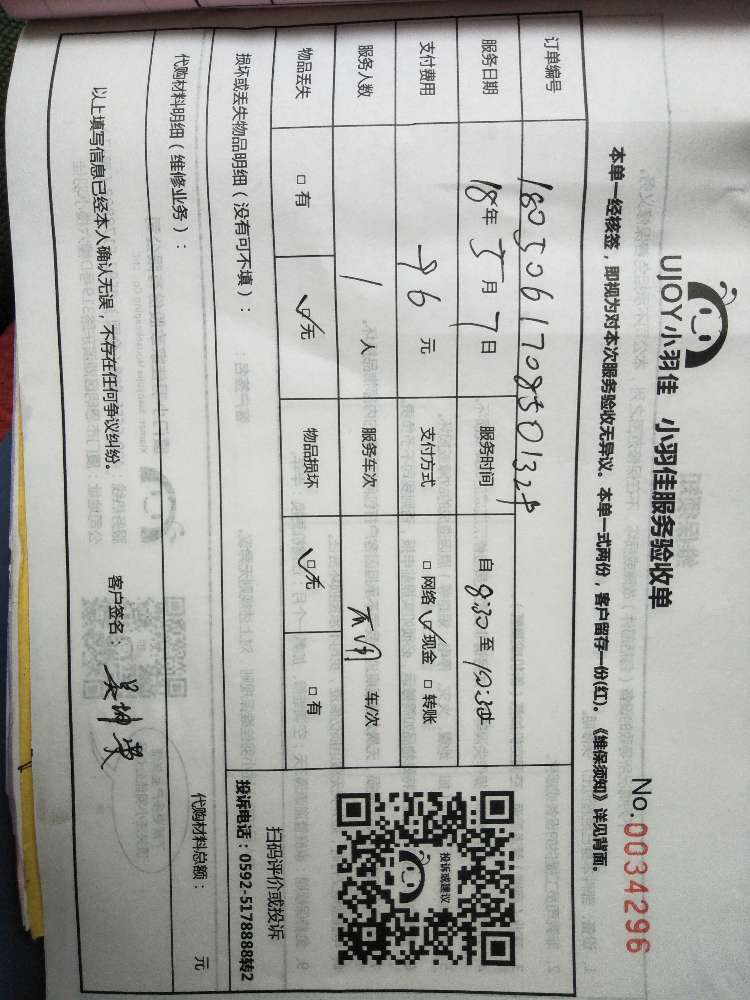 UJOY小羽佳 小羽佳服务验收单
No.0034296
本单一经核签，即视为对本次服务验收无异议。本单一式两份，客户留存一份(红)。《维保须知》详见背面。
订单编号
服务日期 18年5月7日 服务时间 自8:30至10:30
支付费用 96元 支付方式 □网络 ☑现金 □转账
服务人数 1人 服务车次 车/次
物品丢失 □有 ☑无 物品损坏 ☑无 □有
投诉或建议
扫码评价或投诉
投诉电话：0592-5178888转2
损坏或丢失物品明细（没有可不填）：
代购材料明细（维修业务）： 代购材料总额： 元
以上填写信息已经本人确认无误，不存在任何争议纠纷。 客户签名：